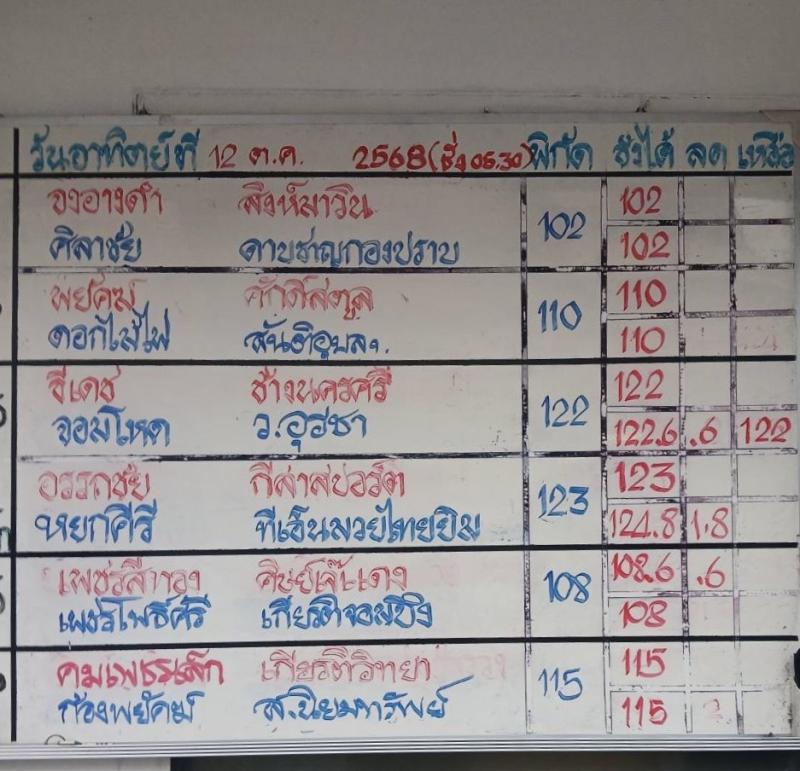 วันอาทิตย์ที่ 12 ต.ค. 2568 (ชั่ง 05.30) พิกัด ชั่งได้ ลด เหลือ
จงอางดำ สิงห์มาวิน 102 102
ศิลาชัย ดาบชาญกองปราบ 102
พยัคฆ์ ศักดิ์สตูล 110 110
ดอกไม้ไฟ สันติอุบลฯ 110
ชีเดช ช้างนครศรี 122 122
จอมโหด ว.อุรชา 122.6 .6 122
อรรถชัย กีล่าสปอร์ต 123 123
หยกคีรี ทีเอ็นมวยไทยยิม 124.8 1.8
เพชรสีทอง ศิษย์เจ๊แดง 108 108.6 .6
เพชรโพธิ์ศรี เกียรติจอมบึง 108
คมเพชรเล็ก เกียรติวิทยา 115 115
ก้องพยัคฆ์ ส.นิยมทรัพย์ 115